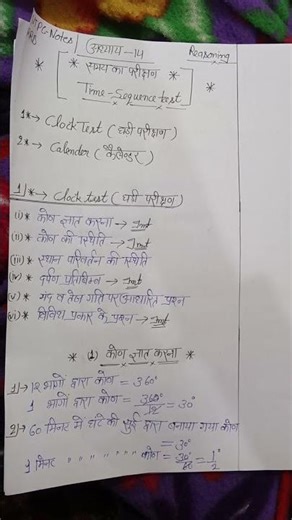 Notes
अध्याय-14
Reasoning
* समय का परीक्षण *
* Time-Sequence test *
1* → Clock Test (घड़ी परीक्षण)
2* → Calender (कैलेण्डर)
1) * → Clock test (घड़ी परीक्षण)
(i) * कोण ज्ञात करना → Imt
(ii) * कोण की स्थिति → Imt
(iii) * स्थान परिवर्तन की स्थिति
(iv) * दर्पण प्रतिबिम्ब → Imt
(v) * मंद व तेज गति पर आधारित प्रश्न
(vi) * विविध प्रकार के प्रश्न → Imt
* (1) कोण ज्ञात करना *
1) → 12 भागों द्वारा कोण = 360°
1 भागों द्वारा कोण = 360°/12 = 30°
2) → 60 मिनट में घंटे की सुई द्वारा बनाया गया कोण
= 30°
1 मिनट " " " " " " कोण = 30°/60 = 1°/2